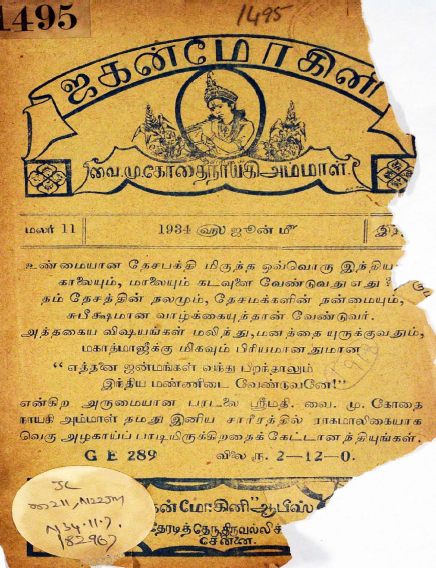 1495
1495
ஜகன்மோகினி
வை.மு.கோதைநாயகி அம்மாள்.
மலர் 11
1934 ௵ ஜூன் ௴
உண்மையான தேசபக்தி மிகுந்த ஒவ்வொரு இந்திய
காலையும், மாலையும் கடவுளை வேண்டுவது எது?
தம் தேசத்தின் நலமும், தேசமக்களின் நன்மையும்,
சுபிக்ஷமான வாழ்க்கையுந்தான் வேண்டுவர்.
அத்தகைய விஷயங்கள் மலிந்து, மனத்தை யுருக்குவதும்,
மகாத்மாஜீக்கு மிகவும் பிரியமானதுமான
“எத்தனை ஜன்மங்கள் வந்து பிறந்தாலும்
இந்திய மண்ணிடை வேண்டுவனே!”
என்கிற அருமையான பாடலை ஸ்ரீமதி. வை. மு. கோதை
நாயகி அம்மாள் தமது இனிய சாரீரத்தில் ராகமாலிகையாக
வெகு அழகாய்ப் பாடியிருக்கிறதைக் கேட்டானந்தியுங்கள்.
G E 289 விலை ரூ. 2-12-0.
கன்மோகினி” ஆபீஸ்
தேரடித் தெரு திருவல்லிக்
சென்னை.
N34.11.9
82967